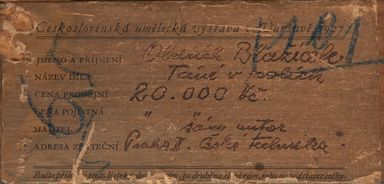 Československá umělecká výstava v Varšavě 1927
JMÉNO A PŘÍJMENÍ Oldřich Blažíček
NÁZEV DÍLA Tání v polích
CENA PRODEJNÍ 20.000 Kč.
CENA POJISTNÁ "
MAJITEL sám autor
ADRESA ZPÁTEČNÍ Praha II. Česká technika.
Račte přilepiti tento lístek